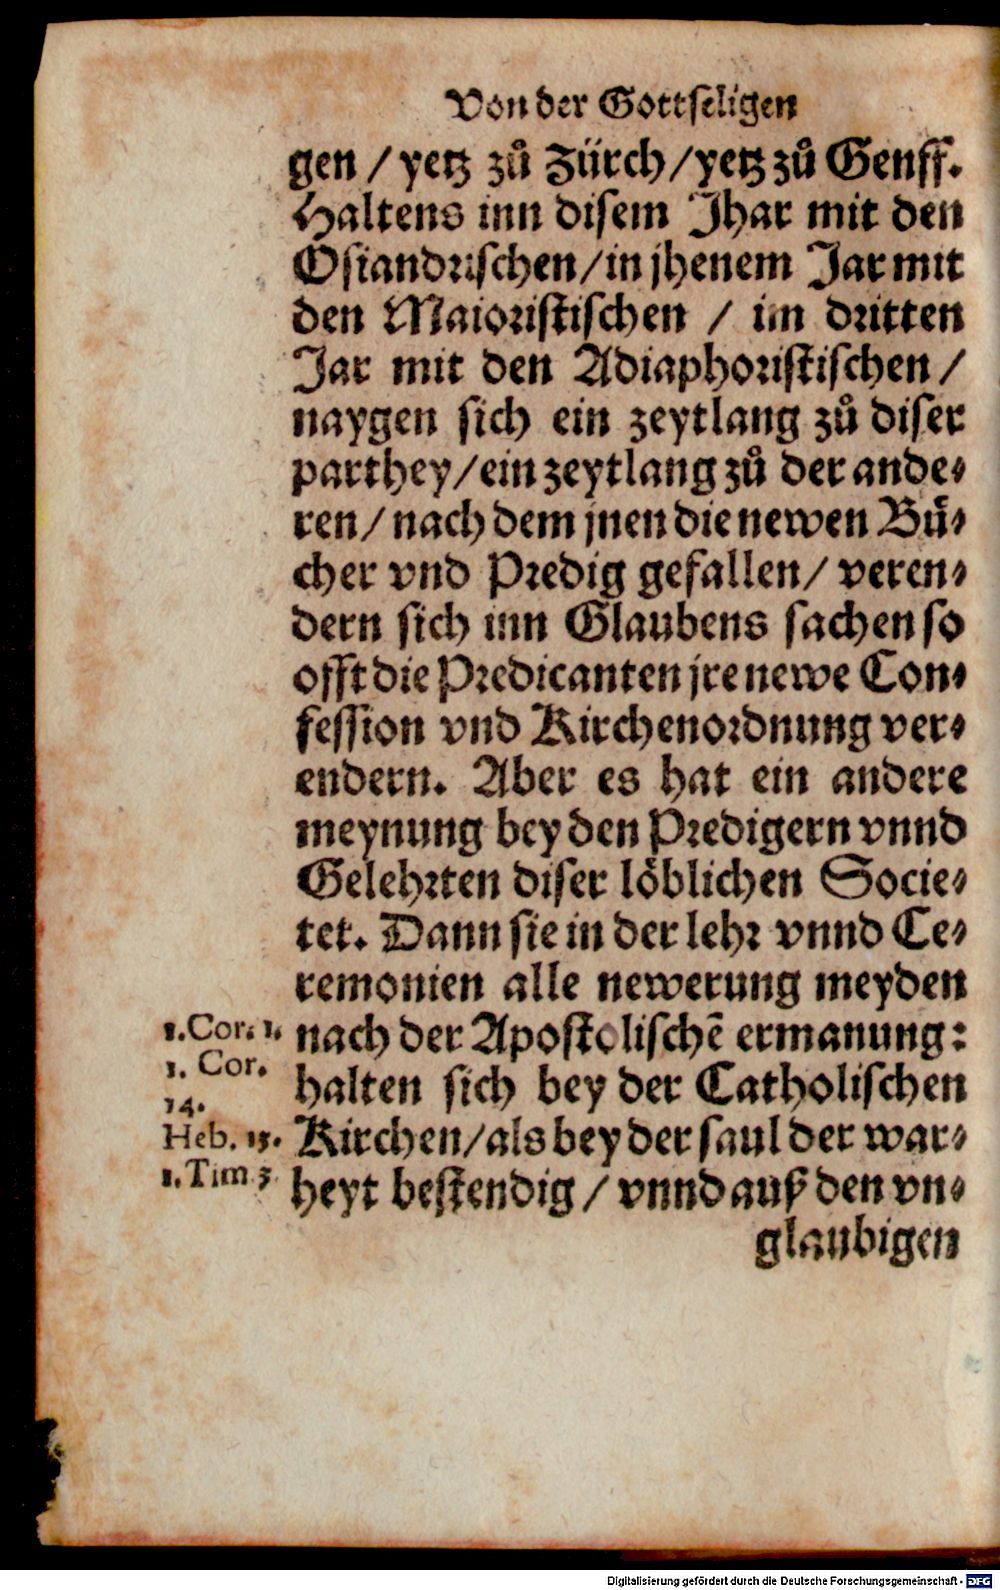 Von der Gottseligen
gen / yetz zů Zürch / yetz zů Genff.
Haltens inn disem Jhar mit den
Osiandrischen / in jhenem Jar mit
den Maioristischen / im dritten
Jar mit den Adiaphoristischen /
naygen sich ein zeytlang zů diser
parthey / ein zeytlang zů der ande-
ren / nach dem jnen die newen Bü-
cher vnd Predig gefallen / veren-
dern sich inn Glaubens sachen so
offt die Predicanten jre newe Con-
fession vnd Kirchenordnung ver-
endern. Aber es hat ein andere
meynung bey den Predigern vnnd
Gelehrten diser löblichen Socie-
tet. Dann sie in der lehr vnnd Ce-
remonien alle newerung meyden
1.Cor. 1. nach der Apostolischē ermanung:
1. Cor.
14.
halten sich bey der Catholischen
Heb. 13. Kirchen / als bey der saul der war-
1.Tim 3 heyt bestendig / vnnd auß den vn-
glaubigen
Digitalisierung gefördert durch die Deutsche Forschungsgemeinschaft - DFG